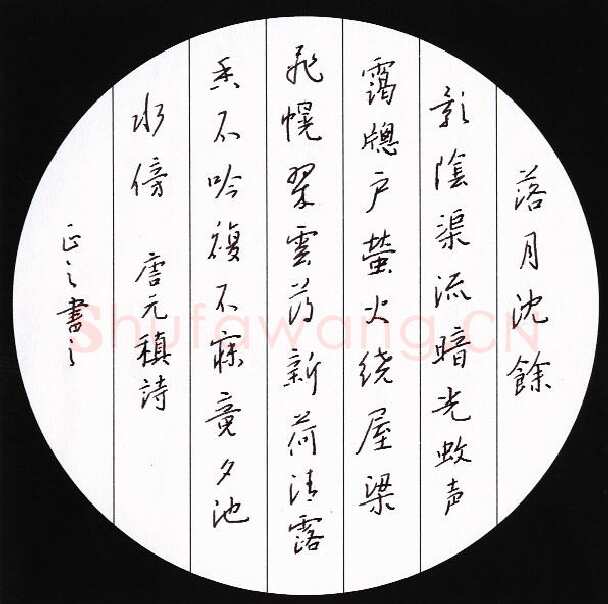 落月沈餘
影陰渠流暗光蚊声
靄牕户螢火绕屋梁
飛幌翠雲薄新荷清露
香不吟複不寐竟夕池
水傍 唐元稹詩
正之書之
Shufawang.CN